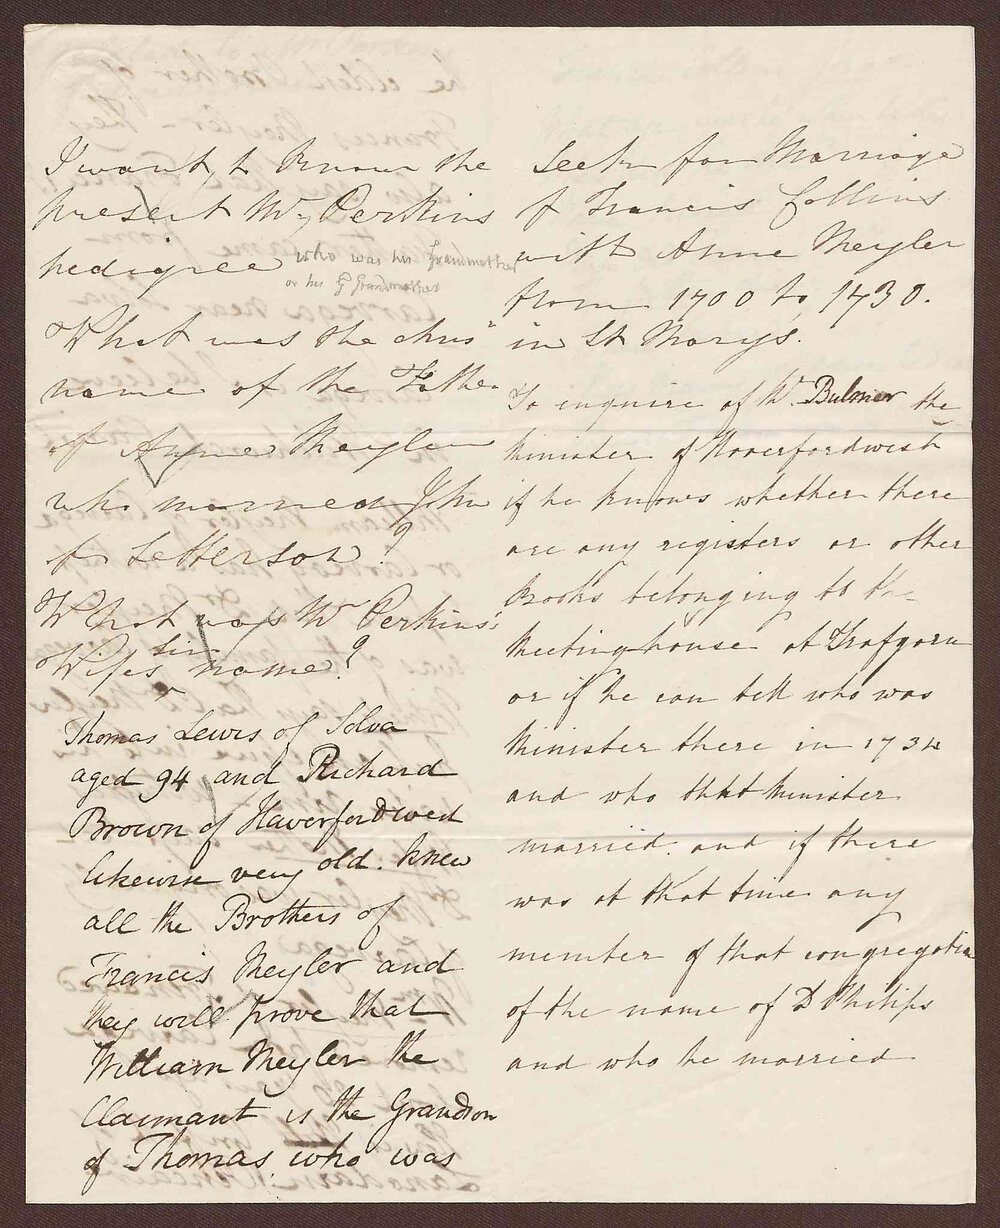 I want to know the
present Mr Perkins
pedigree who was his Grandmother
or his G Grandmother
What was the chris"
name of the Father
of Anne Meyler
who married John
of Jefferson?
What was Mr Perkins's
Wifes Sir name?
Thomas Lewis of Solva
aged 94 and Richard
Brown of Haverfordwest
likewise very old. knew
all the Brothers of
Francis Meyler and
they will prove that
William Meyler the
Claimant is the Grandson
of Thomas who was
Seek for Marriage
of Francis Collins
with Anne Meyler
from 1700 to 1730.
in St Marys.
To inquire of Mr. Bulmer the
Minister of Haverfordwest
if he knows whether there
are any registers or other
Books belonging to the
Meetinghouse at Trafgarn
or if he can tell who was
Minister there in 1734
and who that Minister
married. and if there
was at that time any
member of that congregation
of the name of D Philips
and who he married